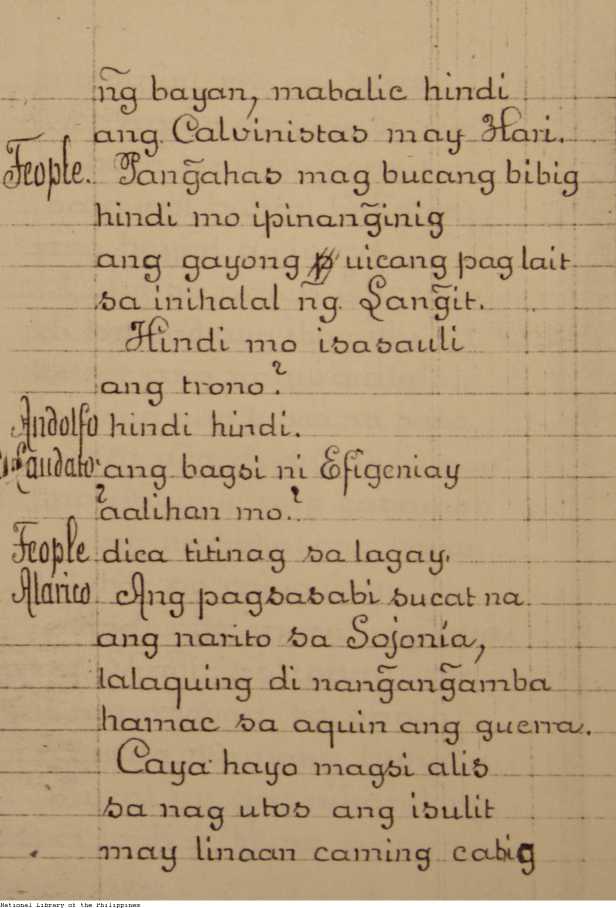 n͠g bayan, mabalic hindi
ang Calvinistas may Hari.
Feople. Pang̃ahas mag bucang bibig
hindi mo ipinang̃inig
ang gayong uicang pag lait
sa inihalal n͠g Lang̃it.
Hindi mo isasauli
ang trono?
Andolfo hindi hindi.
Laudato. ang bagsi ni Efigeniay
?aalihan mo.?
Feople dica titinag sa lagay.
Alarico. Ang pagsasabi sucat na
ang narito sa Sojonia,
lalaquing di nang̃ang̃amba
hamac sa aquin ang guerra.
Caya hayo magsi alis
sa nag utos ang isulit
may linaan caming cabig
National Library of the Philippines